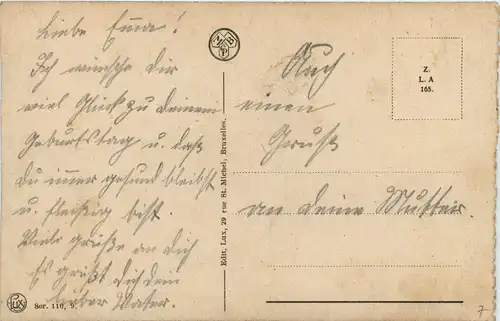 Liebe Erna!
Ich wünsche Dir
viel Glück zu Deinem
Geburtstag u. daß
Du immer gesund bleibst
u. fleißig bist.
Viele Grüße an Dich
Es grüßt Dich Dein
lieber Vater.
Auch
einen
Gruß
an Deine Mutter.
Z.
L. A
165.
Edit. Lux, 29 rue St. Michel, Bruxelles.
Lux
Ser. 110, 5.
7